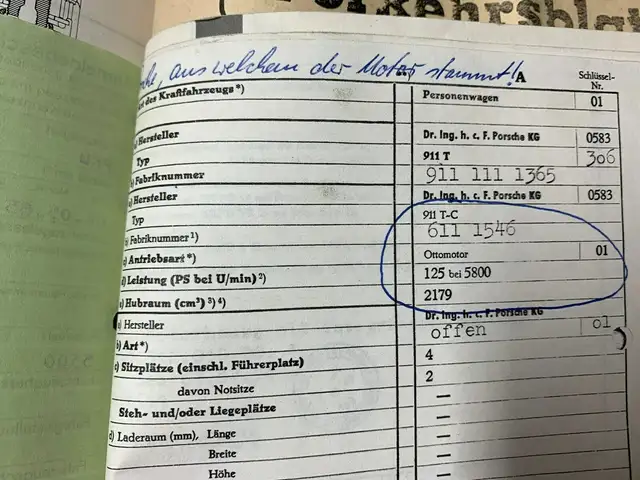 Verkehrsbla
aus welchem der Motor stammt!
A
Schlüssel-
Nr.
des Kraftfahrzeugs*)
Personenwagen 01
Hersteller Dr. Ing. h. c. F. Porsche KG 0583
Typ 911 T 306
Fabriknummer 911 111 1365
Hersteller Dr. Ing. h. c. F. Porsche KG 0583
Typ 911 T-C
Fabriknummer¹) 611 1546
c) Antriebsart*) Ottomotor 01
d) Leistung (PS bei U/min)²) 125 bei 5800
e) Hubraum (cm³) ³) ⁴) 2179
a) Hersteller Dr. Ing. h. c. F. Porsche KG
b) Art*) offen 01
c) Sitzplätze (einschl. Führerplatz) 4
davon Notsitze 2
Steh- und/oder Liegeplätze —
d) Laderaum (mm), Länge —
Breite —
Höhe —